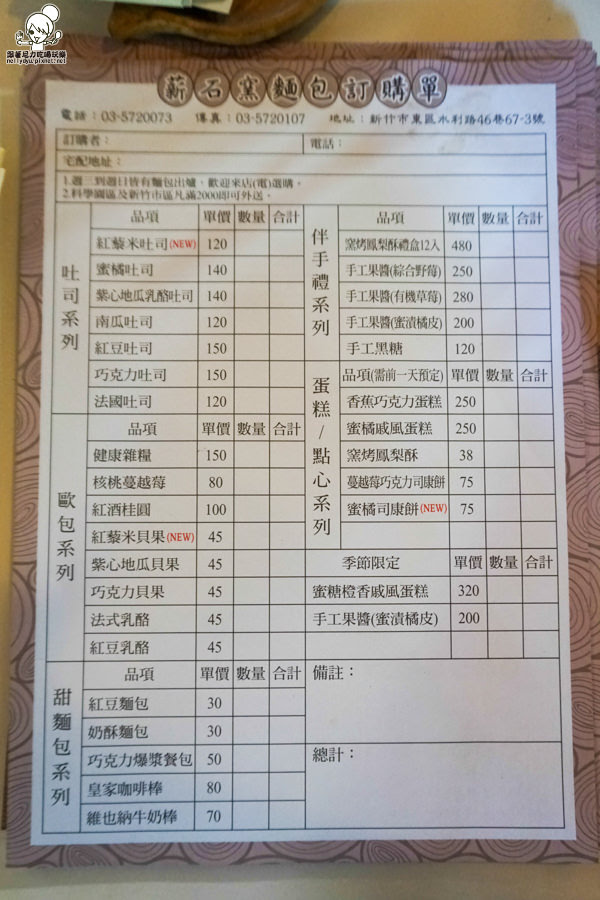 跟著尼力吃喝玩樂
nellydyu.pixnet.net
薪石窯麵包訂購單
電話：03-5720073 傳真：03-5720107 地址：新竹市東區水利路46巷67-3號
訂購者： 電話：
宅配地址：
1.週三到週日皆有麵包出爐，歡迎來店(電)選購。
2.科學園區及新竹市區凡滿2000即可外送。
吐司系列
品項 單價 數量 合計
紅藜米吐司(NEW) 120
蜜橘吐司 140
紫心地瓜乳酪吐司 140
南瓜吐司 120
紅豆吐司 150
巧克力吐司 150
法國吐司 120
歐包系列
品項 單價 數量 合計
健康雜糧 150
核桃蔓越莓 80
紅酒桂圓 100
紅藜米貝果(NEW) 45
紫心地瓜貝果 45
巧克力貝果 45
法式乳酪 45
紅豆乳酪 45
甜麵包系列
品項 單價 數量 合計
紅豆麵包 30
奶酥麵包 30
巧克力爆漿餐包 50
皇家咖啡棒 80
維也納牛奶棒 70
伴手禮系列
品項 單價 數量 合計
窯烤鳳梨酥禮盒12入 480
手工果醬(綜合野莓) 250
手工果醬(有機草莓) 280
手工果醬(蜜漬橘皮) 200
手工黑糖 120
蛋糕/點心系列
品項(需前一天預定) 單價 數量 合計
香蕉巧克力蛋糕 250
蜜橘戚風蛋糕 250
窯烤鳳梨酥 38
蔓越莓巧克力司康餅 75
蜜橘司康餅(NEW) 75
季節限定 單價 數量 合計
蜜糖橙香戚風蛋糕 320
手工果醬(蜜漬橘皮) 200
備註：
總計：